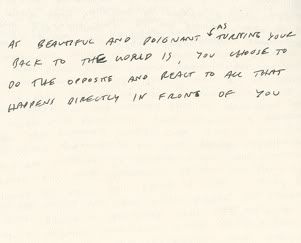 AS
AS BEAUTIFUL AND POIGNANT TURNING YOUR
BACK TO THE WORLD IS, YOU CHOOSE TO
DO THE OPPOSITE AND REACT TO ALL THAT
HAPPENS DIRECTLY IN FRONT OF YOU